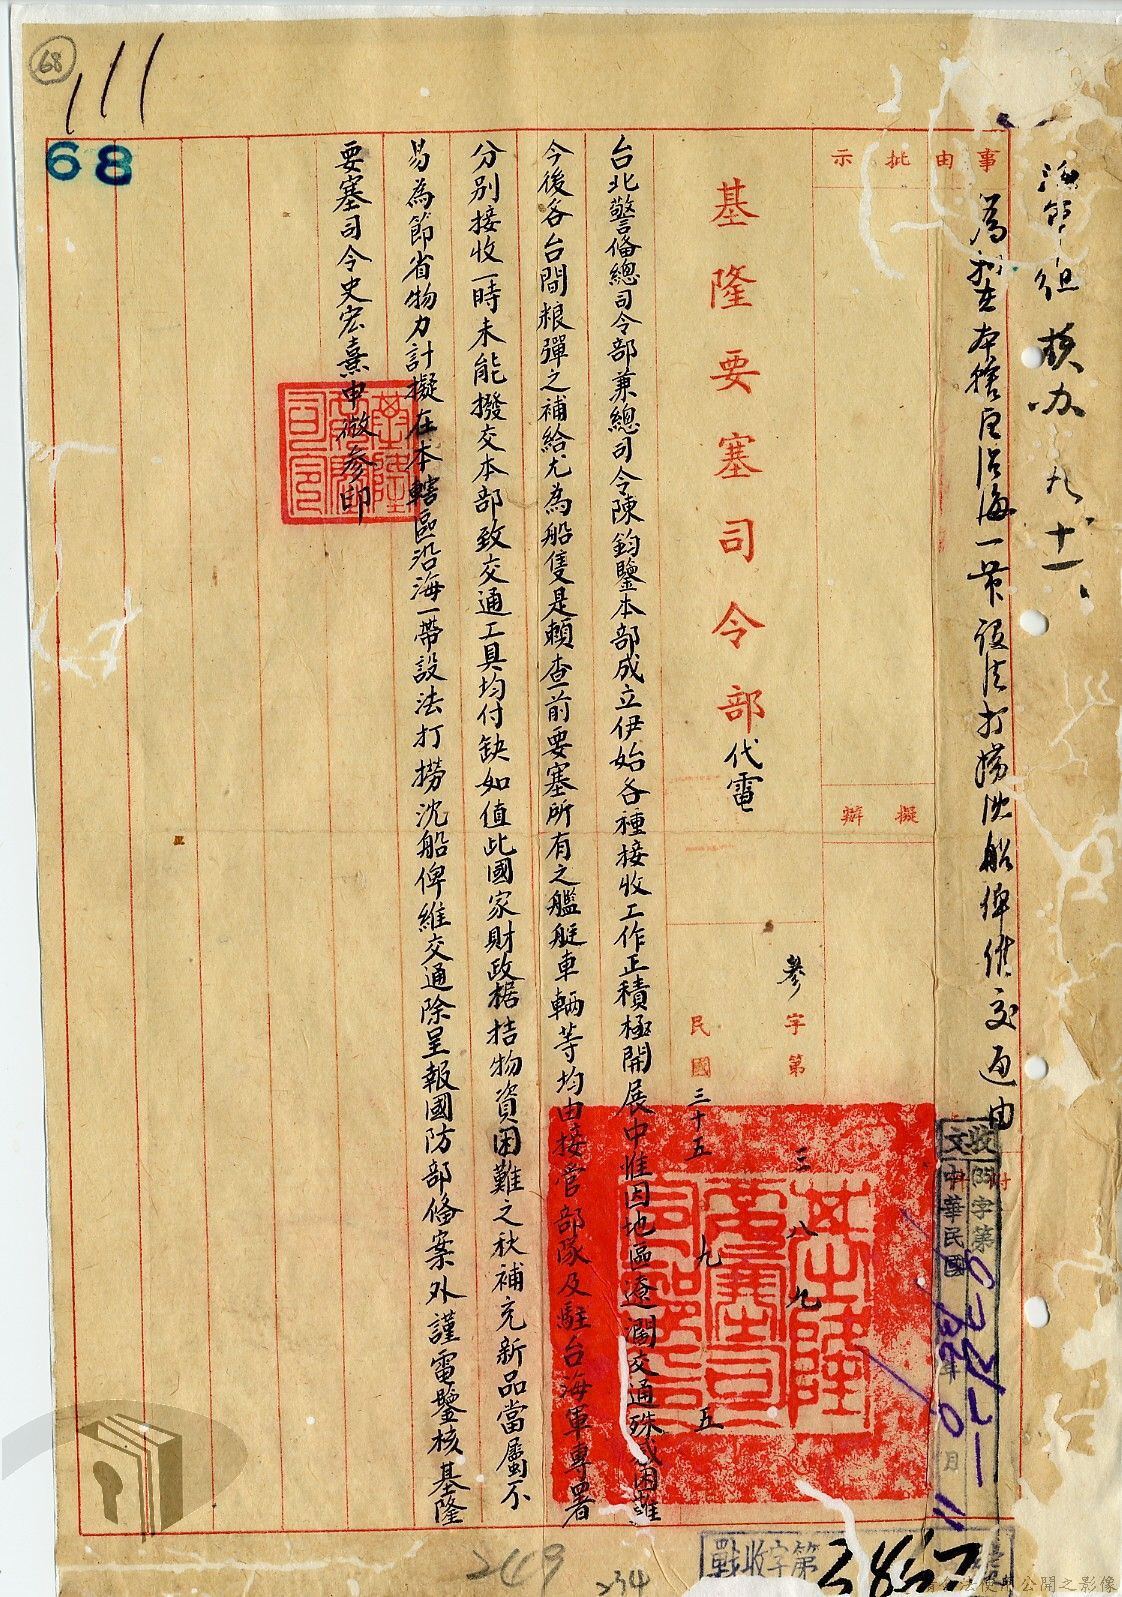 68
68
核办 九、十一、
事由
批示
擬辦
為擬在本轄區沿海一帶設法打撈沈船俾維交通由
基隆要塞司令部代電
參字第三八九
民國三十五 九 五
台北警備總司令部兼總司令陳鈞鑒本部成立伊始各種接收工作正積極開展中惟因地區遼濶交通殊感困難
今後各台間粮彈之補給尤為船隻是賴查前要塞所有之艦艇車輛等均由接管部隊及駐台海軍專署
分別接收一時未能撥交本部致交通工具均付缺如值此國家財政椐拮物資困難之秋補充新品當屬不
易為節省物力計擬在本轄區沿海一帶設法打撈沈船俾維交通除呈報國防部俻案外謹電鑒核基隆
要塞司令史宏熹申微參印
基隆要塞司令
基隆要塞司令部印
收文
字第
中華民國 年 月
戰收字第
249
234